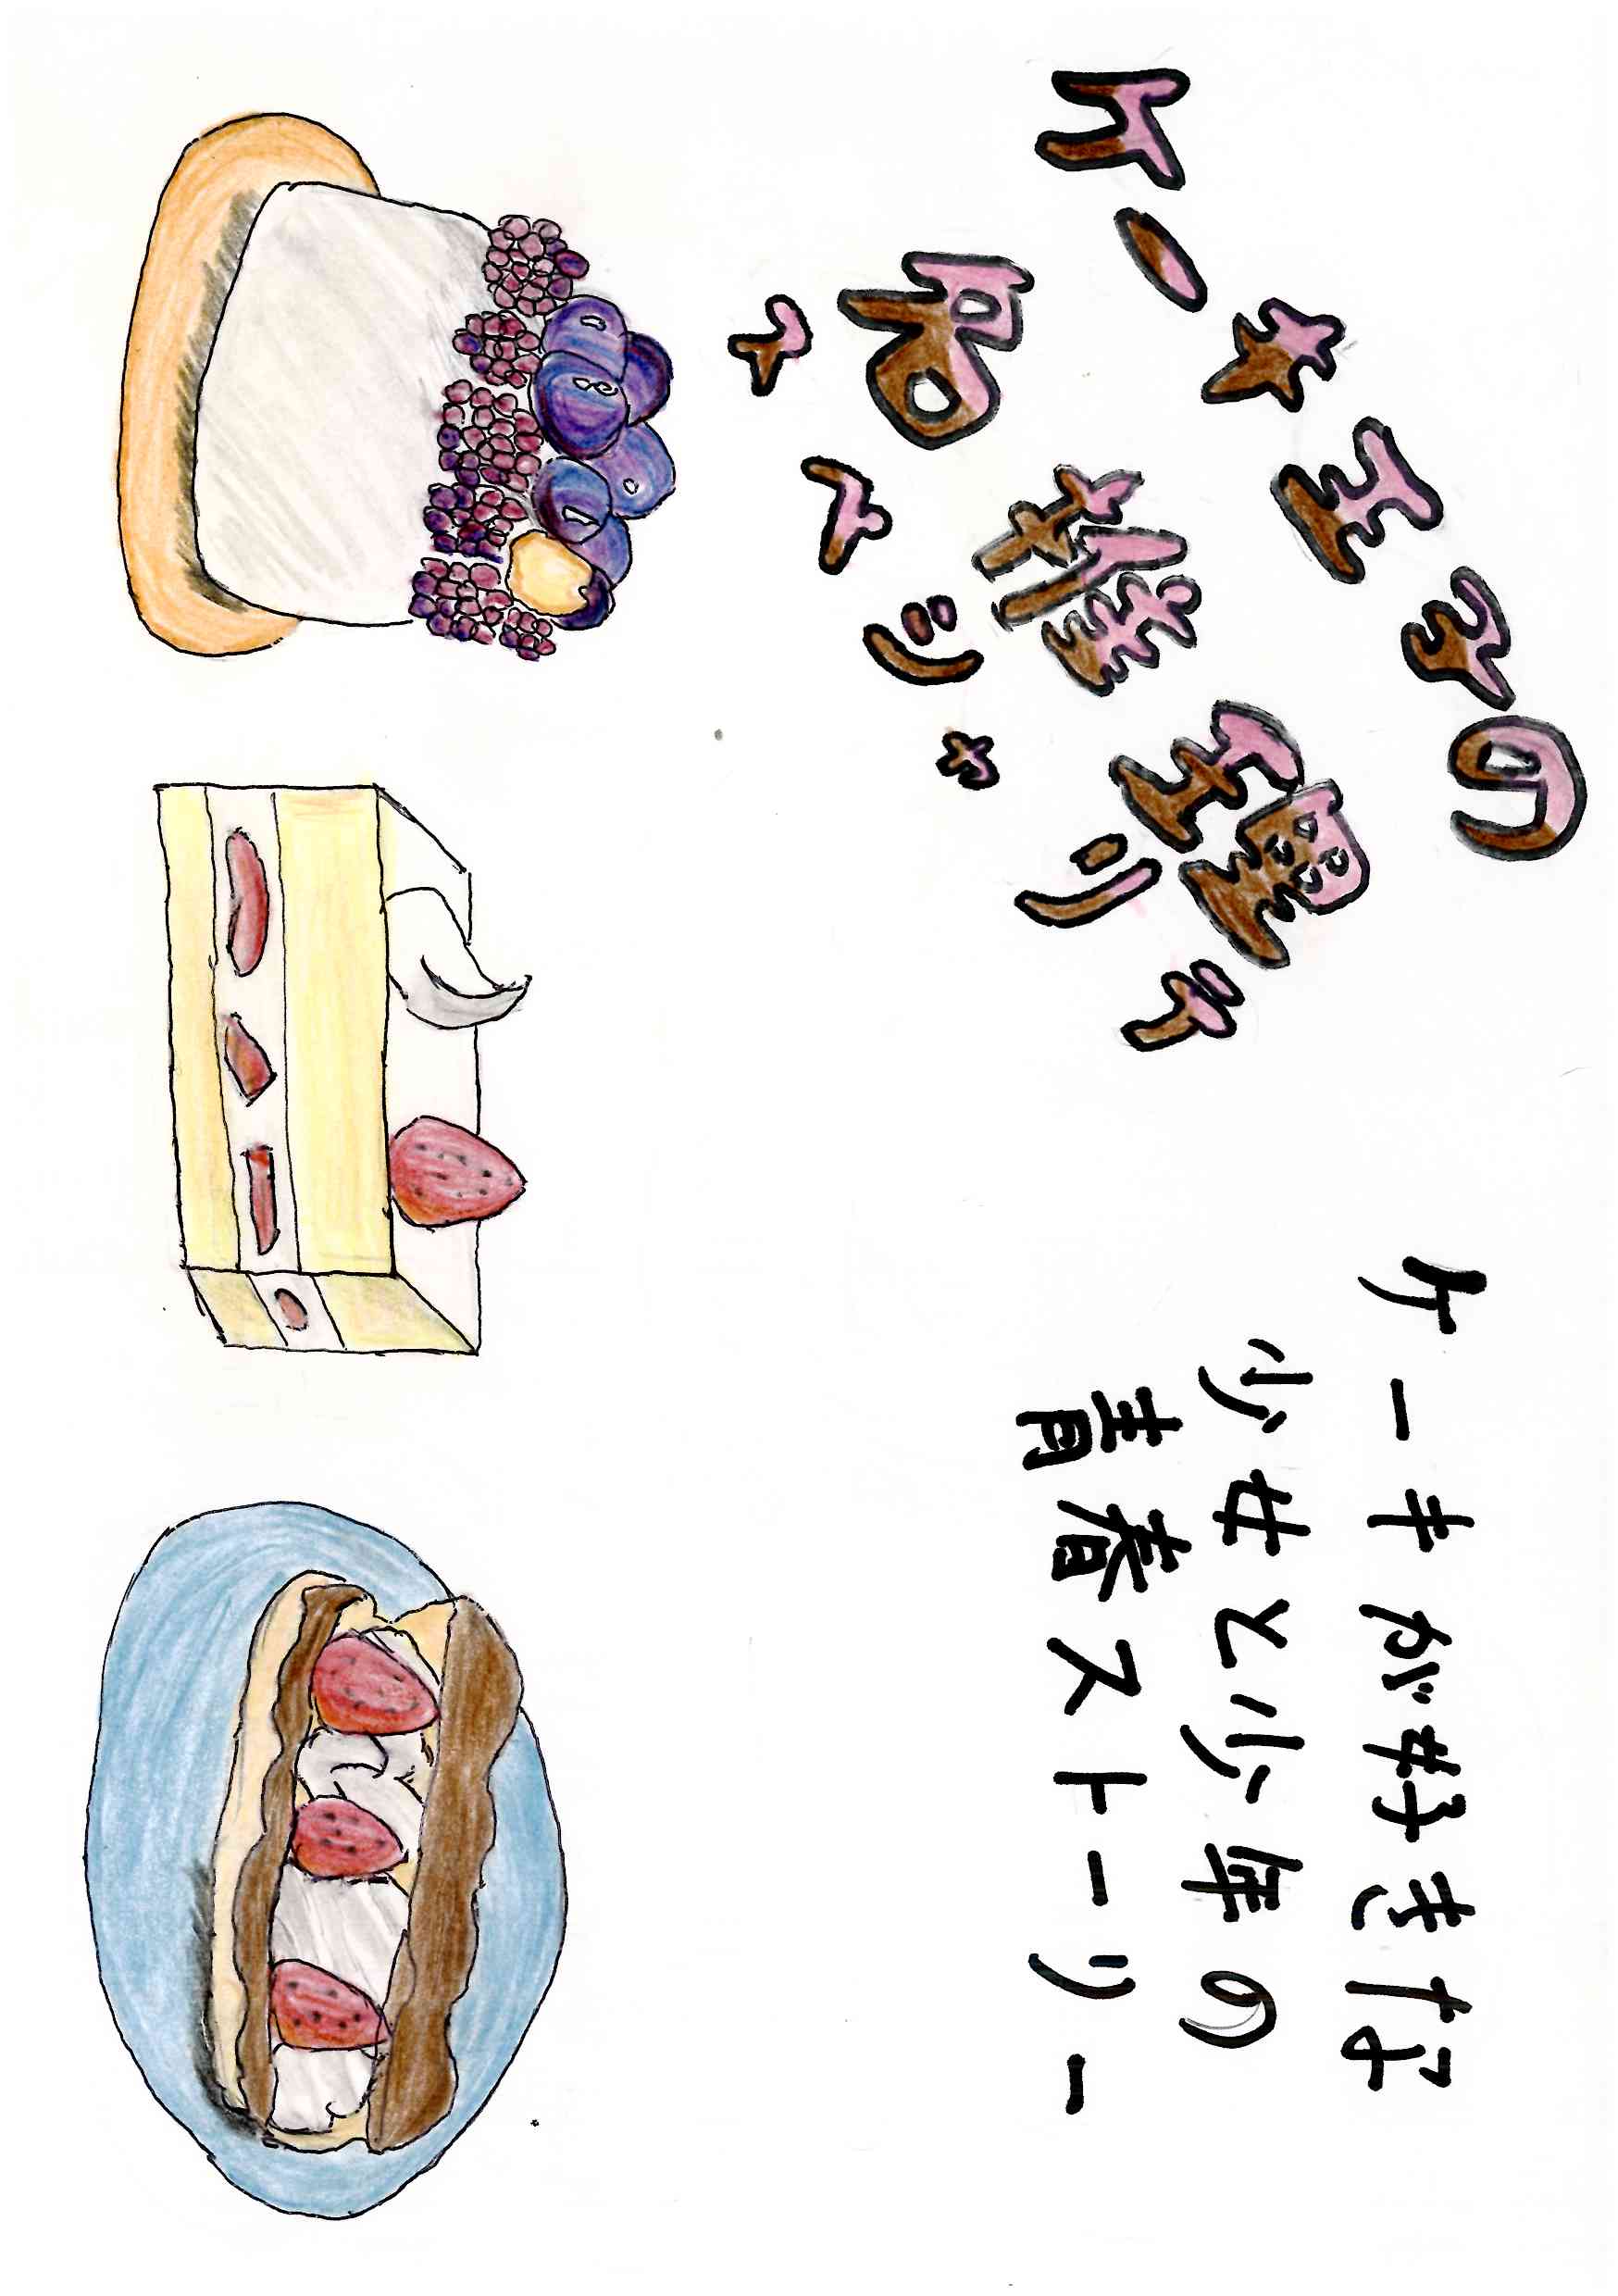 ケーキ王子の
名推理
スペシャリテ
ケーキが好きな
少女と少年の
青春ストーリー